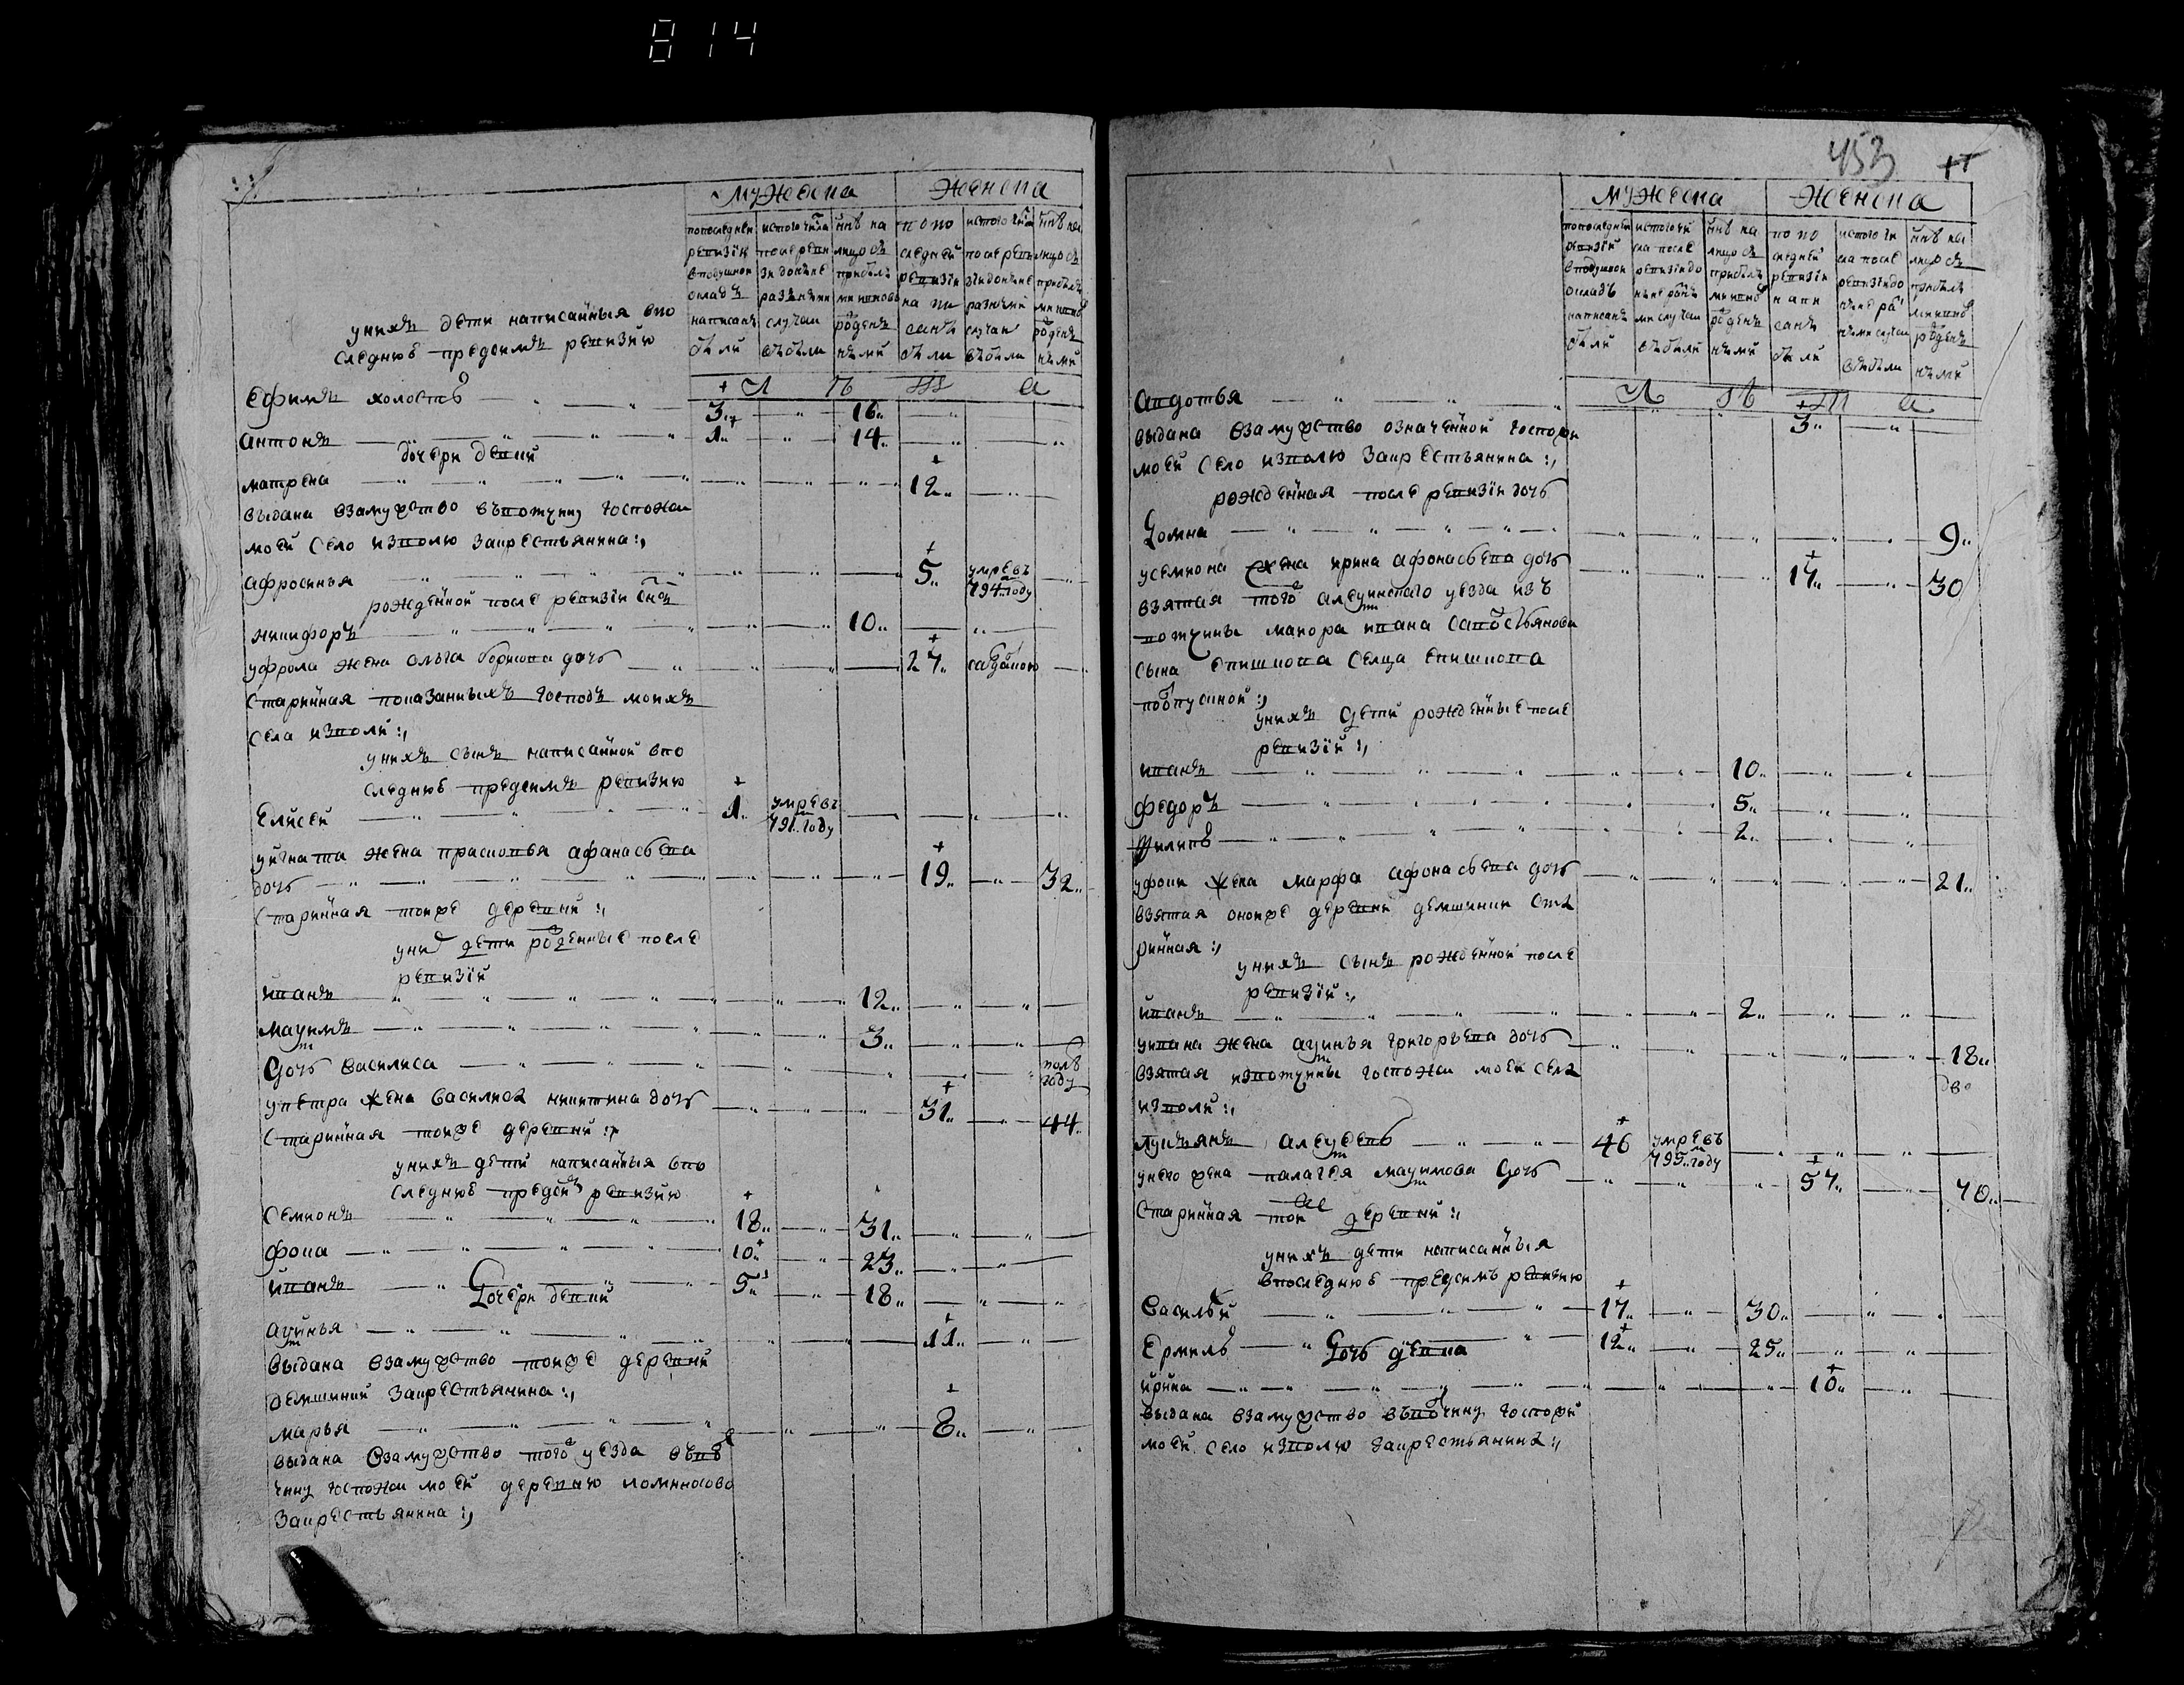 814
мужеска
женска
попоследней
ревизіи
вподушной
окладъ
написанъ
были
истого числа
после реви
зіи до ныне
разными
случаи
выбыли
ныне на
лицо съ
прибыл
ми и новоро
жден
ными
по по
следней
ревизіи
на пи
саны
были
истого числа
после реви
зіи до ныне
разными
случаи
выбыли
ныне на
лицо съ
прибыл
ми и новоро
жден
ными
Л Ѣ Т А
у нихъ дети написанныя впо
следнюю предсимъ ревизию
Ефимъ холостъ 3 16
Антонъ 1 14
дочери девки
матрена 12
выдана взамужство въвотчину госпожи
моей село изволю закрестьянина
афросинья 5 умре въ 794 году
рожденной после ревизіи сынъ
никифоръ 10
уфрола жена ольга борисова дочь 27
старинная показанныхъ господъ моихъ
села изволи
унихъ сынъ написанной впо
следнюю предсимъ ревизию
Елисей 1 умре въ 791 году
уигната жена прасковья афанасьева
дочь 19 32
старинная тоиже деревни
уних дети рожденные после
ревизіи
иванъ 12
маѯимъ 3
дочь василиса полъ году
упетра жена василиса никитина дочь 31 44
старинная тоиже деревни
унихъ дети написанныя впо
следнюю предсимъ ревизию
семионъ 18 31
фока 10 23
иванъ 5 18
дочери девки
аѯинья 11
выдана взамужство тоиже деревни
демшинки закрестьянина
марья 8
выдана взамужство того уезда въвот
чину госпожи моей деревню
закрестьянина
453
мужеска
женска
попоследней
ревизіи
вподушной
окладъ
написанъ
были
истого чи
сла после
ревизіи до
ныне разны
ми случаи
выбыли
ныне на
лицо съ
прибыл
ми и ново
рожден
ными
по по
следней
ревизіи
на пи
саны
были
истого чи
сла после
ревизіи до
ныне раз
ными случаи
выбыли
ныне на
лицо съ
прибыл
ми и ново
рожден
ными
Л Ѣ Т А
Авдотья 3
выдана взамужство означенной госпожи
моей село изволю закрестьянина
рожденная после ревизіи дочь
Домна 9
усемиона жена ирина афонасьева дочь 17 30
взятая того алеѯинского уезда изъ
вотчины маиора ивана савостьянова
сына епишкова селца епишкова
поотпускной
унихъ дети рожденные после
ревизіи
иванъ 10
федоръ 5
филипъ 2
уфоки жена марфа афонасьева дочь 21
взятая оноиже деревни демшинки ста
ринная
унихъ сынъ рожденной после
ревизіи
иванъ 2
уивана жена аѯинья григорьева дочь 18
взятая извотчины госпожи моей села
изволи
лукьянъ алеѯеевъ 46 умре въ 795 году
унево жена палагея маѯимова дочь 57 70
старинная тоиже деревни
унихъ дети написанныя
впоследнюю предсимъ ревизию
василей 17 30
Ермилъ 12 25
дочь девка
ирина 10
выдана взамужство въвотчину госпожи
моей село изволю закрестьянина